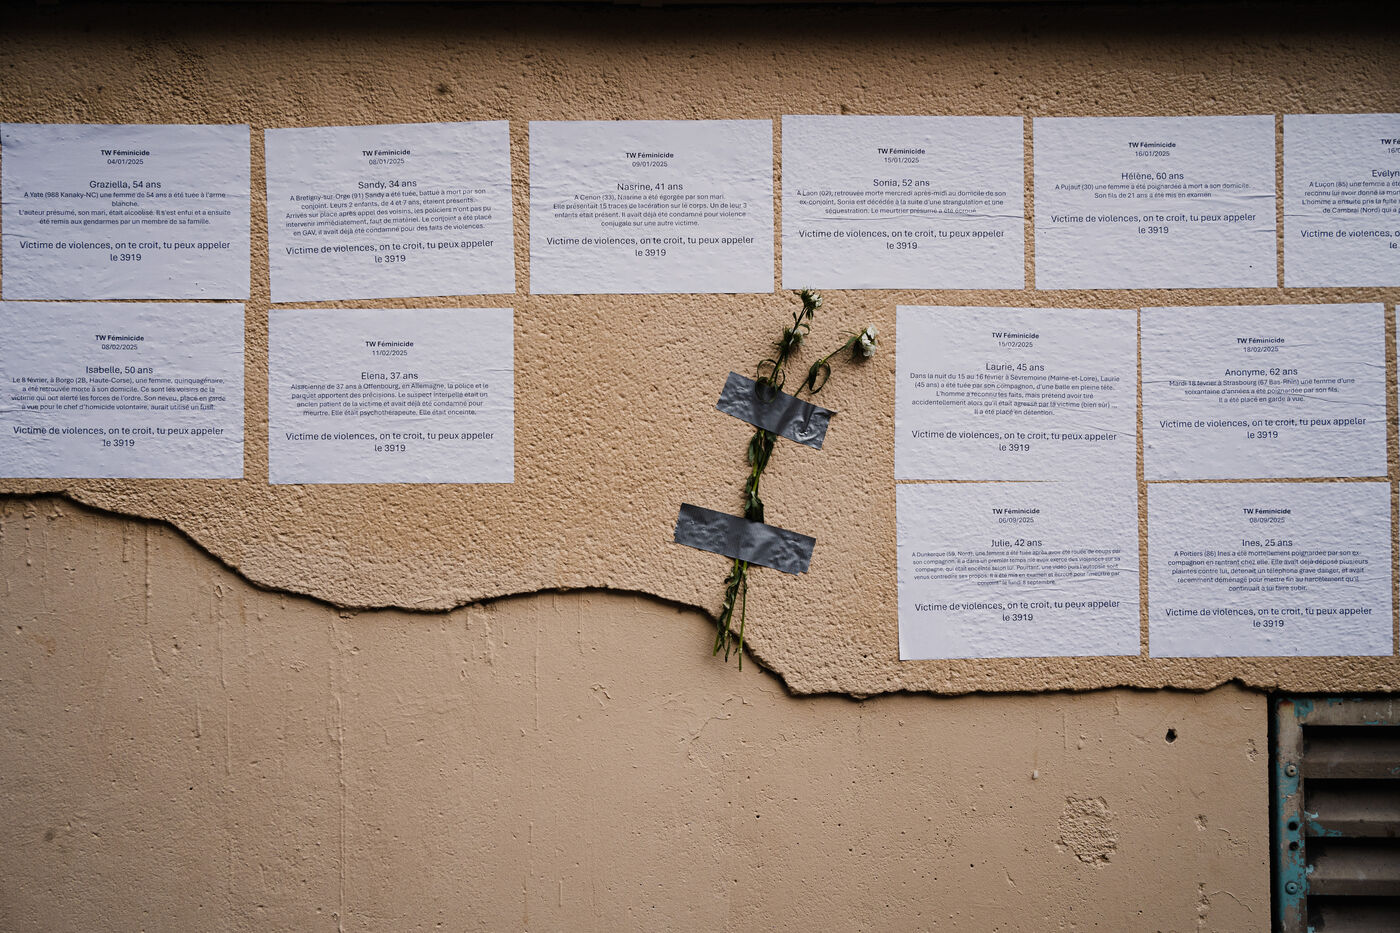 TW Féminicide
04/01/2025
Graziella, 54 ans
A Yaté (988 Kanaky-NC) une femme de 54 ans a été tuée à l'arme
blanche.
L'auteur présumé, son mari, était alcoolisé. Il s'est enfui et a ensuite
été remis aux gendarmes par un membre de sa famille.
Victime de violences, on te croit, tu peux appeler
le 3919
TW Féminicide
08/01/2025
Sandy, 34 ans
A Bretigny-sur-Orge (91) Sandy a été tuée, battue à mort par son
conjoint. Leurs 2 enfants, de 4 et 7 ans, étaient présents.
Arrivés sur place après appel des voisins, les policiers n'ont pas pu
intervenir immédiatement, faut de matériel. Le conjoint a été placé
en GAV, il avait déjà été condamné pour des faits de violences.
Victime de violences, on te croit, tu peux appeler
le 3919
TW Féminicide
09/01/2025
Nasrine, 41 ans
A Cenon (33), Nasrine a été égorgée par son mari.
Elle présentait 15 traces de lacération sur le corps. Un de leur 3
enfants était présent. Il avait déjà été condamné pour violence
conjugale sur une autre victime.
Victime de violences, on te croit, tu peux appeler
le 3919
TW Féminicide
15/01/2025
Sonia, 52 ans
A Laon (02), retrouvée morte mercredi après-midi au domicile de son
ex-conjoint, Sonia est décédée à la suite d'une strangulation et une
séquestration. Le meurtrier présumé a été écroué.
Victime de violences, on te croit, tu peux appeler
le 3919
TW Féminicide
16/01/2025
Hélène, 60 ans
A Pujaut (30) une femme a été poignardée à mort à son domicile.
Son fils de 21 ans a été mis en examen
Victime de violences, on te croit, tu peux appeler
le 3919
TW Fé
16/0
Evelyn
A Luçon (85) une femme a été
reconnu lui avoir donné la mort
L'homme a ensuite pris la fuite
de Cambrai (Nord) qui a
Victime de violences, o
le
TW Féminicide
08/02/2025
Isabelle, 50 ans
Le 8 février, à Borgo (2B, Haute-Corse), une femme, quinquagénaire,
a été retrouvée morte à son domicile. Ce sont les voisins de la
victime qui ont alerté les forces de l'ordre. Son neveu, placé en garde
à vue pour le chef d'homicide volontaire, aurait utilisé un fusil.
Victime de violences, on te croit, tu peux appeler
le 3919
TW Féminicide
11/02/2025
Elena, 37 ans
Alsacienne de 37 ans à Offenbourg, en Allemagne, la police et le
parquet apportent des précisions. Le suspect interpellé était un
ancien patient de la victime et avait déjà été condamné pour
meurtre. Elle était psychothérapeute. Elle était enceinte.
Victime de violences, on te croit, tu peux appeler
le 3919
TW Féminicide
15/02/2025
Laurie, 45 ans
Dans la nuit du 15 au 16 février à Sèvremoine (Maine-et-Loire), Laurie
(45 ans) a été tuée par son compagnon, d'une balle en pleine tête.
L'homme a reconnu les faits, mais prétend avoir tiré
accidentellement alors qu'il était agressé par la victime (bien sûr) ...
Il a été placé en détention.
Victime de violences, on te croit, tu peux appeler
le 3919
TW Féminicide
18/02/2025
Anonyme, 62 ans
Mardi 18 février à Strasbourg (67 Bas-Rhin) une femme d'une
soixantaine d'années a été poignardée par son fils.
Il a été placé en garde à vue.
Victime de violences, on te croit, tu peux appeler
le 3919
TW Féminicide
06/09/2025
Julie, 42 ans
A Dunkerque (59, Nord), une femme a été tuée après avoir été rouée de coups par
son compagnon, il a dans un premier temps nié avoir exercé des violences sur sa
compagne, qui était enceinte selon lui. Pourtant, une vidéo puis l'autopsie sont
venus contredire ses propos. Il a été mis en examen et écroué pour "meurtre par
conjoint" le lundi 8 septembre.
Victime de violences, on te croit, tu peux appeler
le 3919
TW Féminicide
08/09/2025
Ines, 25 ans
A Poitiers (86) Ines a été mortellement poignardée par son ex-
compagnon en rentrant chez elle. Elle avait déjà déposé plusieurs
plaintes contre lui, détenait un téléphone grave danger, et avait
récemment déménagé pour mettre fin au harcèlement qu'il
continuait à lui faire subir.
Victime de violences, on te croit, tu peux appeler
le 3919